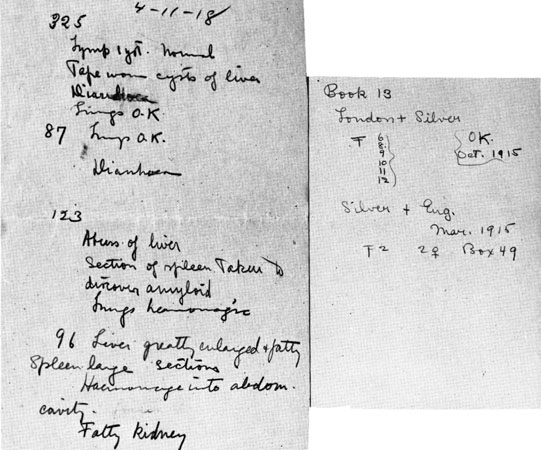 4-11-18
325
Lymp syst. Normal
Tape worm cysts of liver
Diarrhoea
Lungs O.K.
87 Lungs O.K.
Diarrhoea
123
Abcess of liver
Section of spleen Taken to
discover amyloid
Lungs hemorragic
96 Liver greatly enlarged & fatty
Spleen large sections
Haemorrage into abdom.
cavity.
Fatty kidney
Book 13
London + Silver
F 6
8
9
10
11
12
O.K.
Oct. 1915
Silver + Eng.
Mar. 1915
F 2 2♀ Box 49